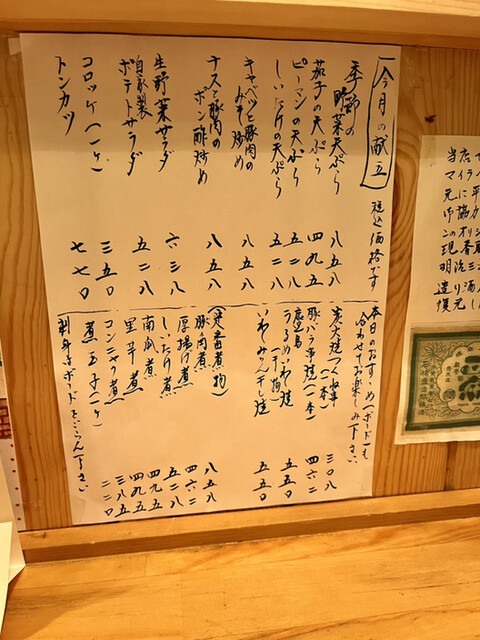 今月の献立 税込価格です
季節の野菜天ぷら 八五八
茄子の天ぷら 四九五
ピーマンの天ぷら 五二八
しいたけの天ぷら 五二八
キャベツと豚肉の
みそ炒め 八五八
ナスと豚肉の
ポン酢炒め 八五八
生野菜サラダ 六三八
自家製
ポテトサラダ 五二八
コロッケ(一ケ) 三五〇
トンカツ 七七〇
本日のおすすめ(ボード)も
合わせてお楽しみ下さい。
(一本) 三〇八
豚バラ串焼(一本) 四六二
鹿児島
うるめいわし焼 五五〇
(干物)
いわしみりん干し焼 五五〇
(定番煮物)
豚肉煮 八五八
厚揚げ煮 四六二
しいたけ煮 五二八
南瓜煮 四九五
里芋煮 四九五
コンニャク煮 三八五
煮玉子(一ケ) 二二〇
刺身はボードをごらん下さい
当店で
マイライ
元に平
協力
のオリジ
明治三
造り酒
復元し